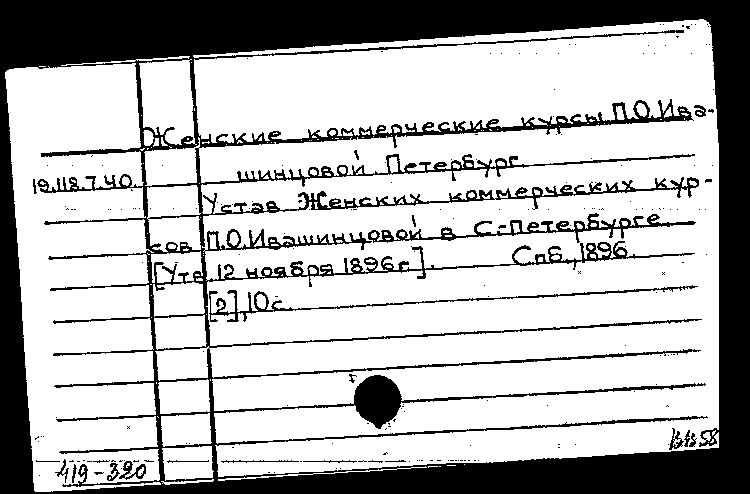 Женские коммерческие курсы П.О.Ива-
шинцовой. Петербург.
19.118.7.40.
Устав Женских коммерческих кур-
сов П.О.Ивашинцовой в С.-Петербурге.
[Утв. 12 ноября 1896 г.]. Спб., 1896.
[2], 10 с.
419-320